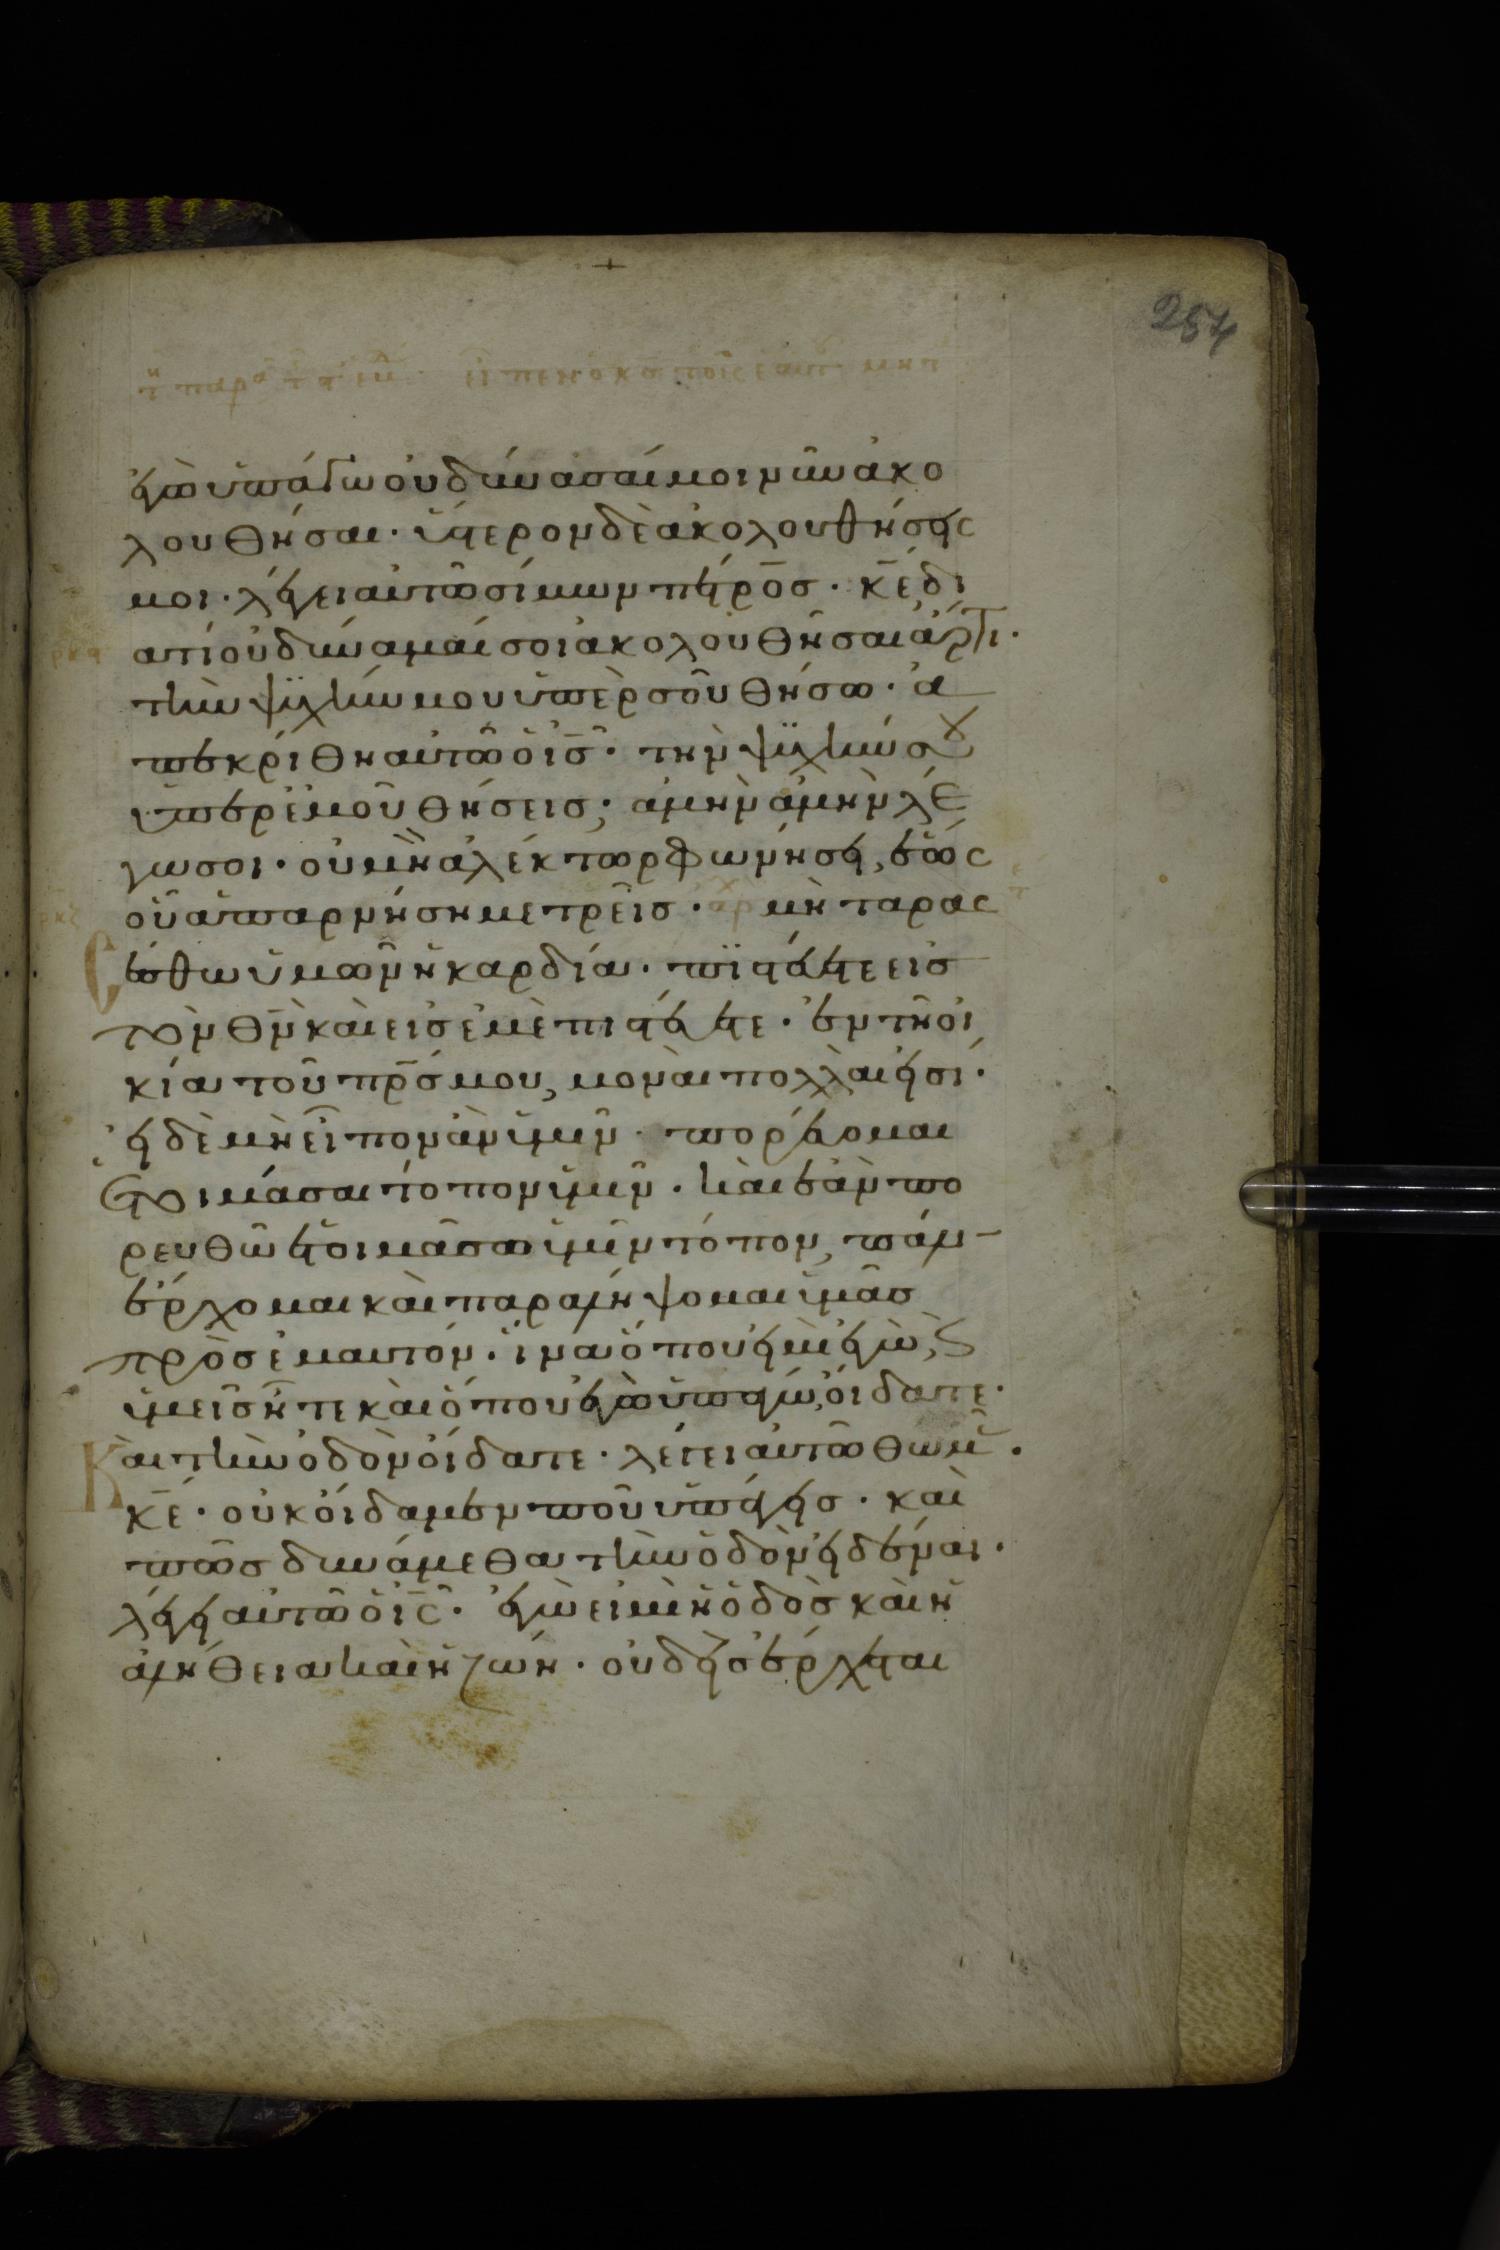 254
ἐγὼ ὑπάγω οὐ δύνασαί μοι νῦν ἀκο
λουθῆσαι· ὕστερον δὲ ἀκολουθήσεις
μοι· λέγει αὐτῶ σίμων πέτρος· κ̅ε̅ δι
ατί οὐ δύναμαί σοι ἀκολουθῆσαι ἄρτι·
τὴν ψυχήν μου ὑπὲρ σοῦ θήσω· ἀ
πεκρίθη αὐτῶ ὁ ι̅ς̅· τὴν ψυχήν σου
ὑπερ ἐμοῦ θήσεις; ἀμὴν ἀμὴν λέ
γω σοι· οὐ μὴ ἀλέκτωρ φωνήσει, ἕως
οὗ ἀπαρνήση με τρεῖς· αρχ μὴ ταρας
έσθω ὑμῶν ἡ καρδία· πιστεύετε εἰς
τὸν θ̅ν̅ καὶ εἰς ἐμὲ πιστεύετε· ἐν τῆ οἰ
κία τοῦ π̅ρ̅ς̅ μου, μοναὶ πολλαὶ εἰσί·
εἰ δὲ μὴ εἶπον ἂν ὑμῖν· πορεύομαι
ἑτοιμάσαι τόπον ὑμῖν· καὶ ἐὰν πο
ρευθῶ ἑτοιμάσαι ὑμῖν τόπον, πάλιν
ἔρχομαι καὶ παραλήψομαι ὑμᾶς
πρὸς ἐμαυτόν· ἵνα ὅπου εἰμὶ ἐγὼ, ϗ
ὑμεῖς ἦτε καὶ ὅπου ἐγὼ ὑπάγω, οἴδατε·
καὶ τὴν ὁδὸν οἴδατε· λέγει αὐτῶ θωμᾶς·
κ̅ε̅· οὐκ οἴδαμεν ποῦ ὑπάγεις· καὶ
πῶς δυνάμεθα τὴν ὁδὸν εἰδέναι·
λέγει αὐτῶ ὁ ι̅ς̅· ἐγὼ εἰμὶ ἡ ὁδὸς καὶ ἡ
ἀλήθεια καὶ ἡ ζωή· οὐδεὶς ἔρχεται